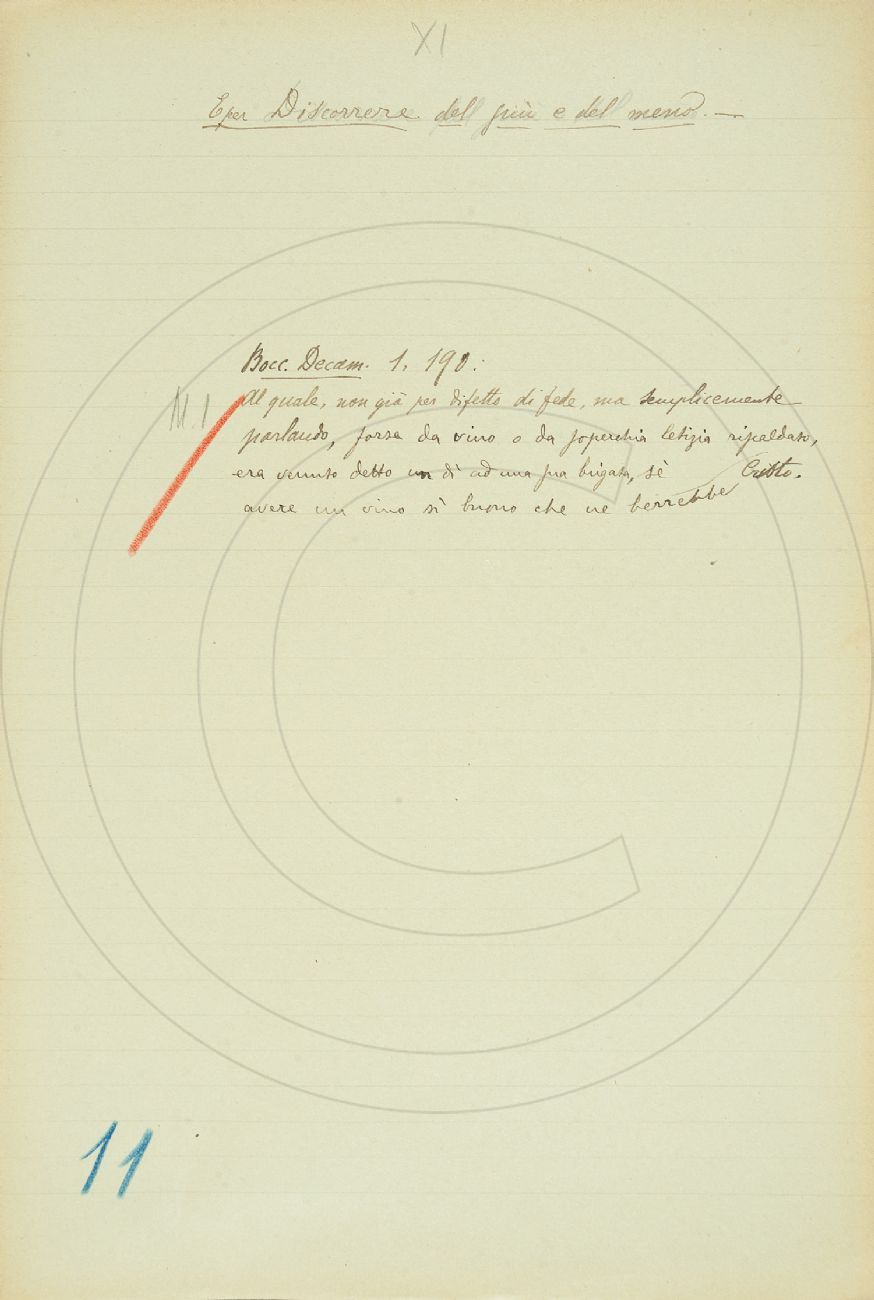 XI
E per Discorrere del più e del meno. —
Bocc. Decam. 1. 190:
M. 1
Al quale, non già per difetto di fede, ma semplicemente
parlando, forse da vino o da soperchia letizia riscaldato,
era venuto detto un dì ad una sua brigata, sè
avere un vino sì buono che ne berrebbe Cristo.
11